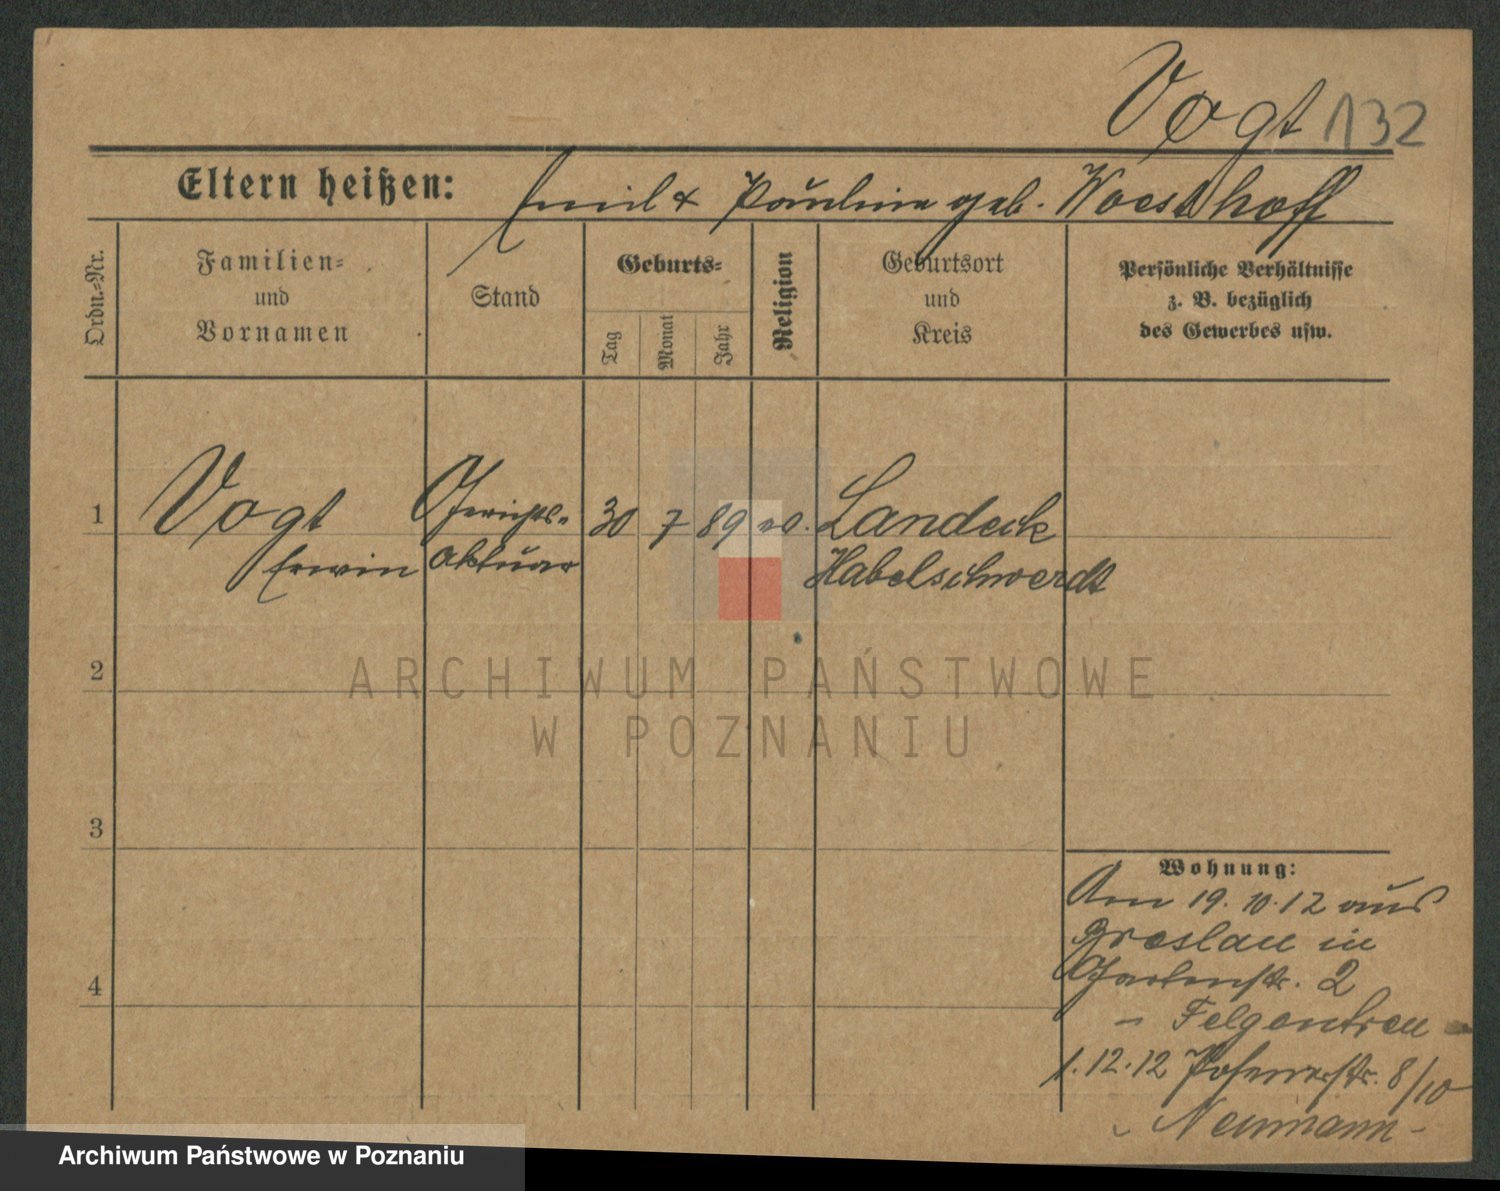 Vogt 132
Eltern heißen: Emil & Pauline geb. Woesthoff
Ordn.-Nr.
Familien-
und
Vornamen
Stand
Geburts-
Tag
Monat
Jahr
Religion
Geburtsort
und
Kreis
Persönliche Verhältnisse
z. B. bezüglich
des Gewerbes usw.
1 Vogt Gerichts- 30 7 89 ev. Landeck
Erwin aktuar Habelschwerdt
2
3
4
Wohnung:
Am 19.10.12 aus
Breslau in
Gartenstr. 2
- Felgentreu -
1.12.12 Posenerstr. 8/10
- Neumann -
ARCHIWUM PAŃSTWOWE
W POZNANIU
Archiwum Państwowe w Poznaniu